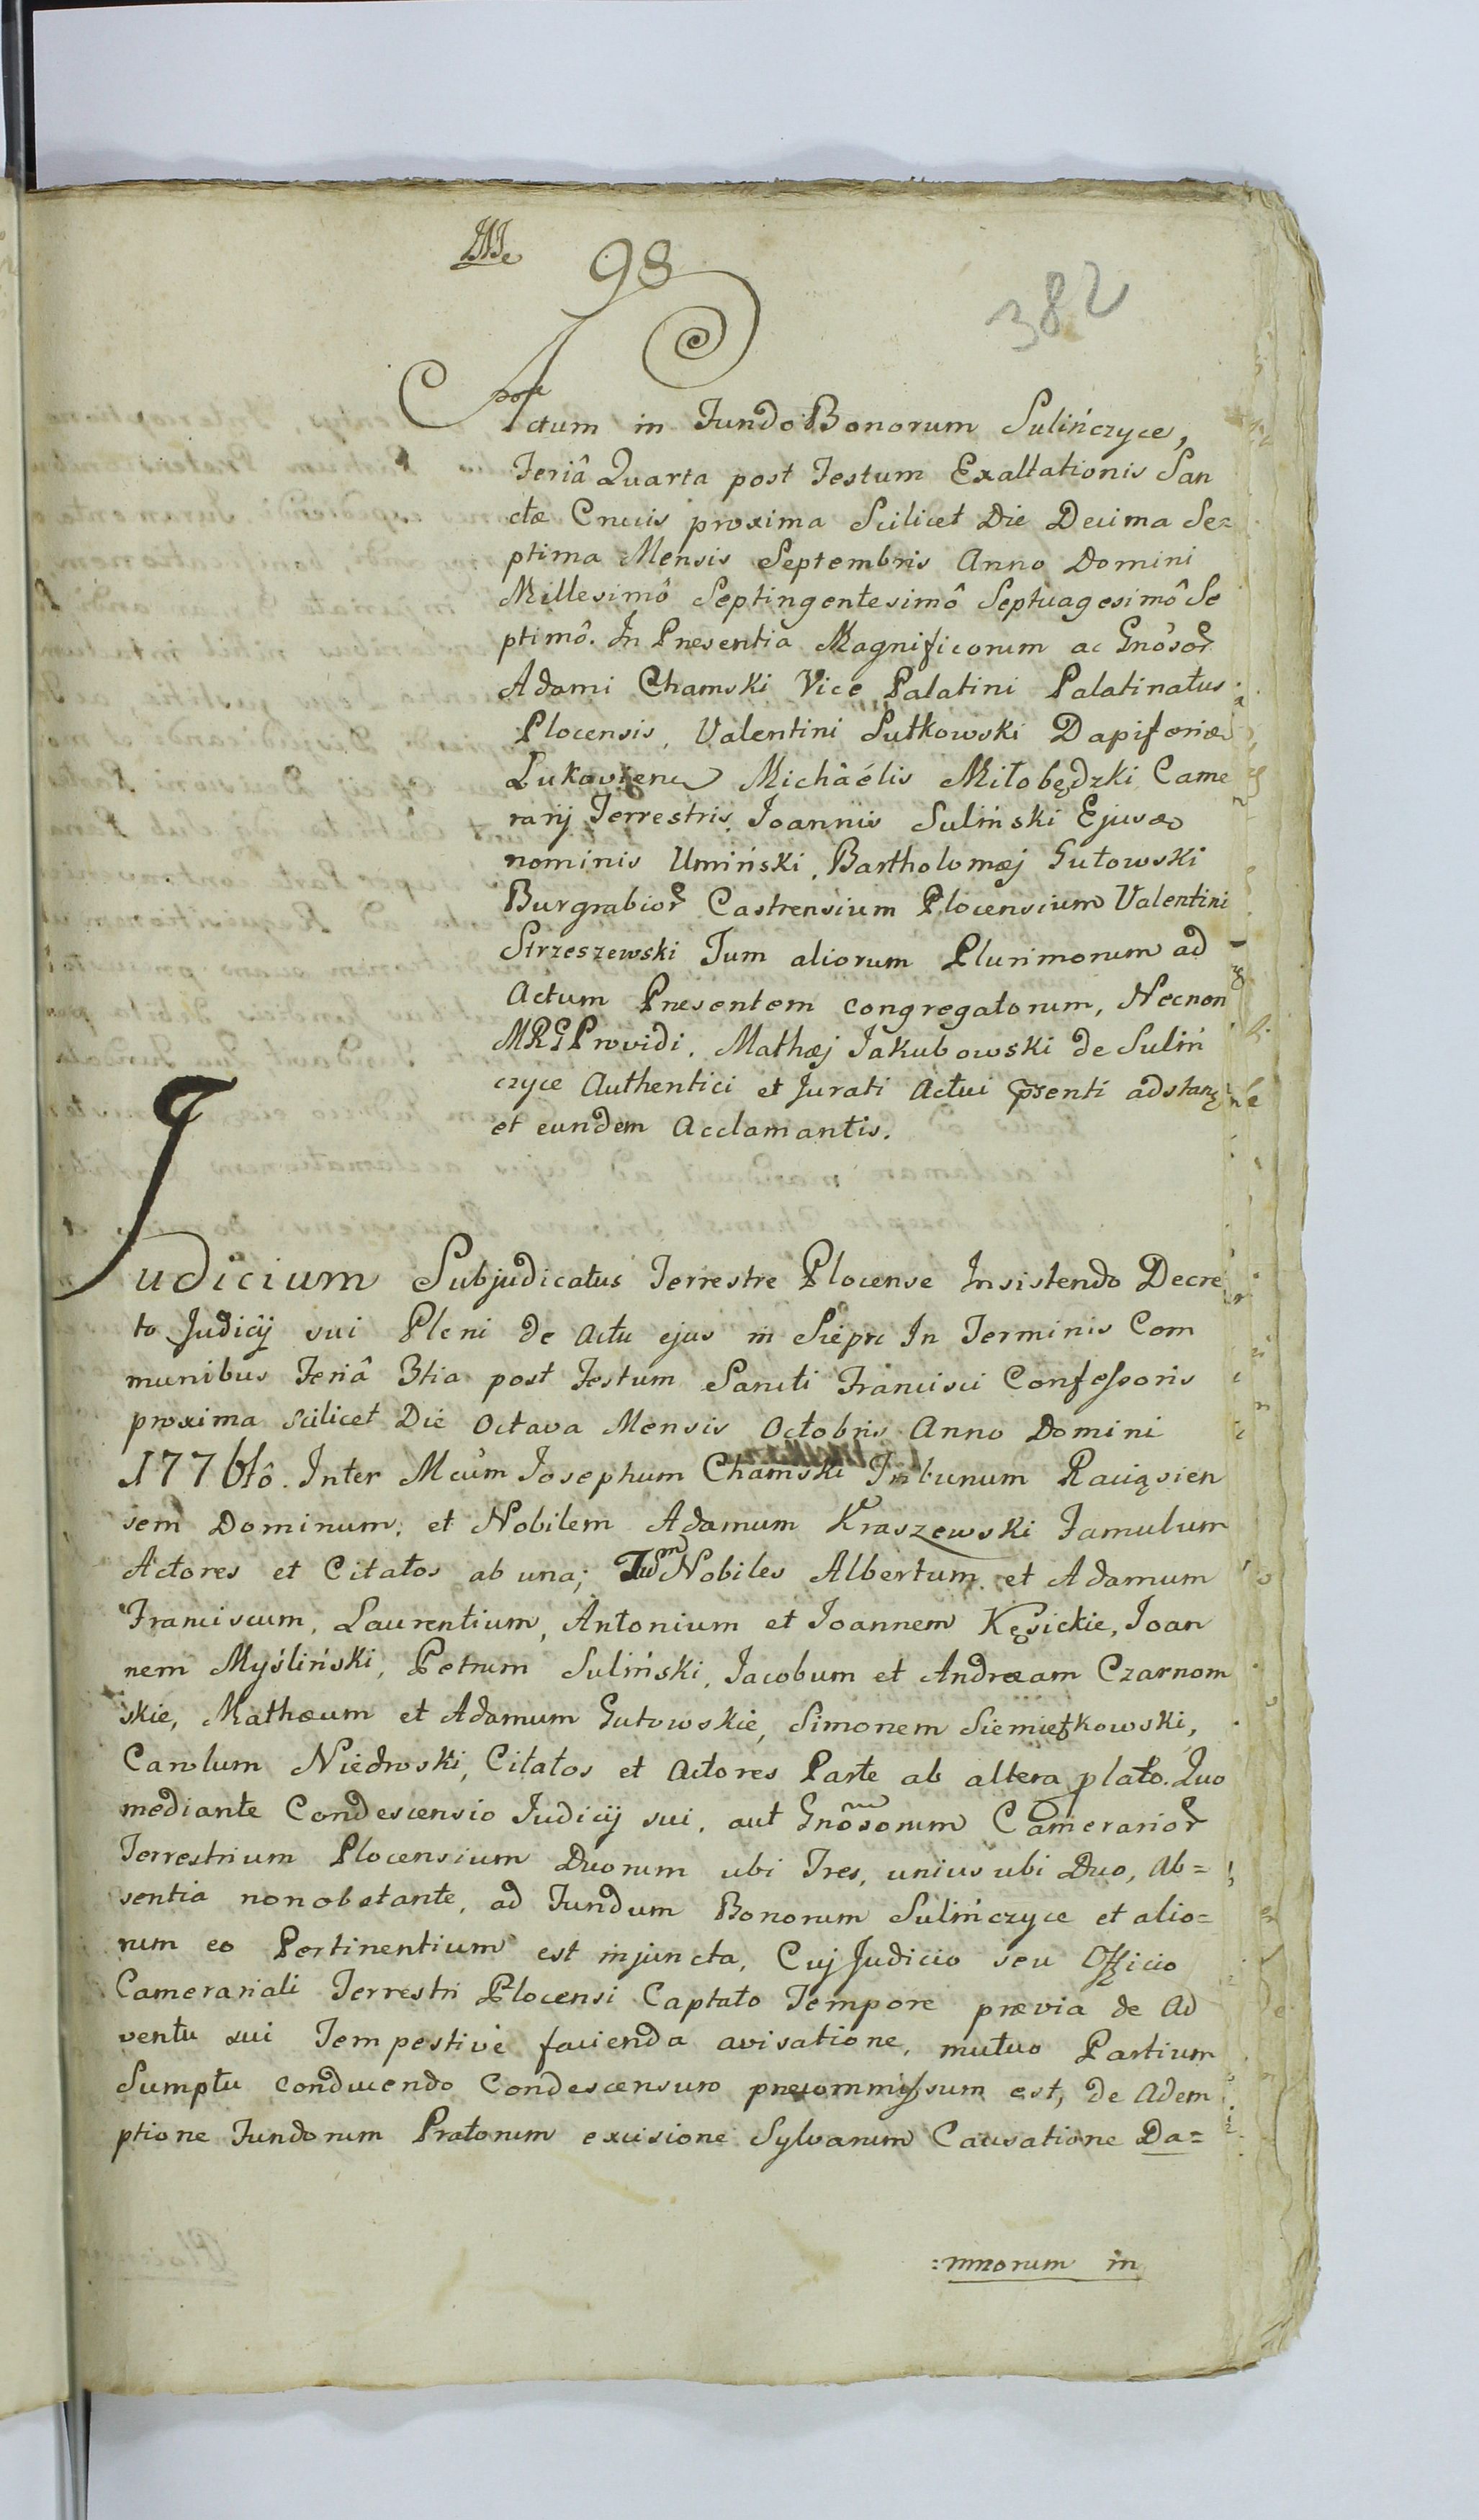 98
382
Actum in Fundo Bonorum Sulińczyce,
Feriâ Quarta post Festum Exaltationis San
ctæ Crucis proxima Scilicet Die Decima Se=
ptima Mensis Septembris Anno Domini
Millesimô Septingentesimô Septuagesimô Se
ptimô. In Presentia Magnificorum ac Gnôsor
Adami Chamski Vice Palatini Palatinatus
Plocensis, Valentini Sutkowski Dapiferi
Michâélis Miłobędzki Came
rarij Terrestris, Joannis Suliński Ejus
nominis Umiński, Bartholomæj Gutowski
Burgrabior Castrensium Plocensium Valentini
Strzeszewski Tum aliorum Plurimorum ad
Actum Presentem congregatorum, Necnon
MRGProvidi. Mathæj Jakubowski de Suliń
czyce Authentici et Jurati Actui prsenti adstan
et eundem Acclamantis.
Judicium Subjudicatus Terrestre Plocense Insistendo Decre
to Judicij sui Pleni de Actu ejus in Siepr In Terminis Com
munibus Feriâ 3tia post Festum Sancti Francisci Confessoris
proxima scilicet Die Octava Mensis Octobris Anno Domini
1776tô. Inter Mcum Josephum Chamski Tribunum Raciązien
sem Dominum, et Nobilem Adamum Kraszewski Famulum
Actores et Citatos ab una; Nobiles Albertum et Adamum
Franciscum, Laurentium, Antonium et Joannem Kęsickie, Joan
nem Myśliński, Petrum Suliński, Jacobum et Andreæam Czarnom
skie, Mathæum et Adamum Gutowskie, Simonem Siemiętkowski,
Carolum Niedroski, Citatos et Actores Parte ab altera plato. Quo
mediante Condescensio Judicij sui, aut Gnôsorum Camerarior
Terrestrium Plocensium Duorum ubi Tres, unius ubi Duo, Ab=
sentia nonobstante, ad Fundum Bonorum Sulińczyce et alio=
rum eo Pertinentium est injuncta, Cuj Judicio seu Officio
Camerariali Terrestri Plocensi Captato Tempore prævia de Ad
ventu sui Tempestive facienda avisatione, mutuo Partium
Sumptu conducendo Condescensuro precommissum est, de Adem
ptione Fundorum Pratorum excisione Sylvarum Causatione Da=
=mnorum in